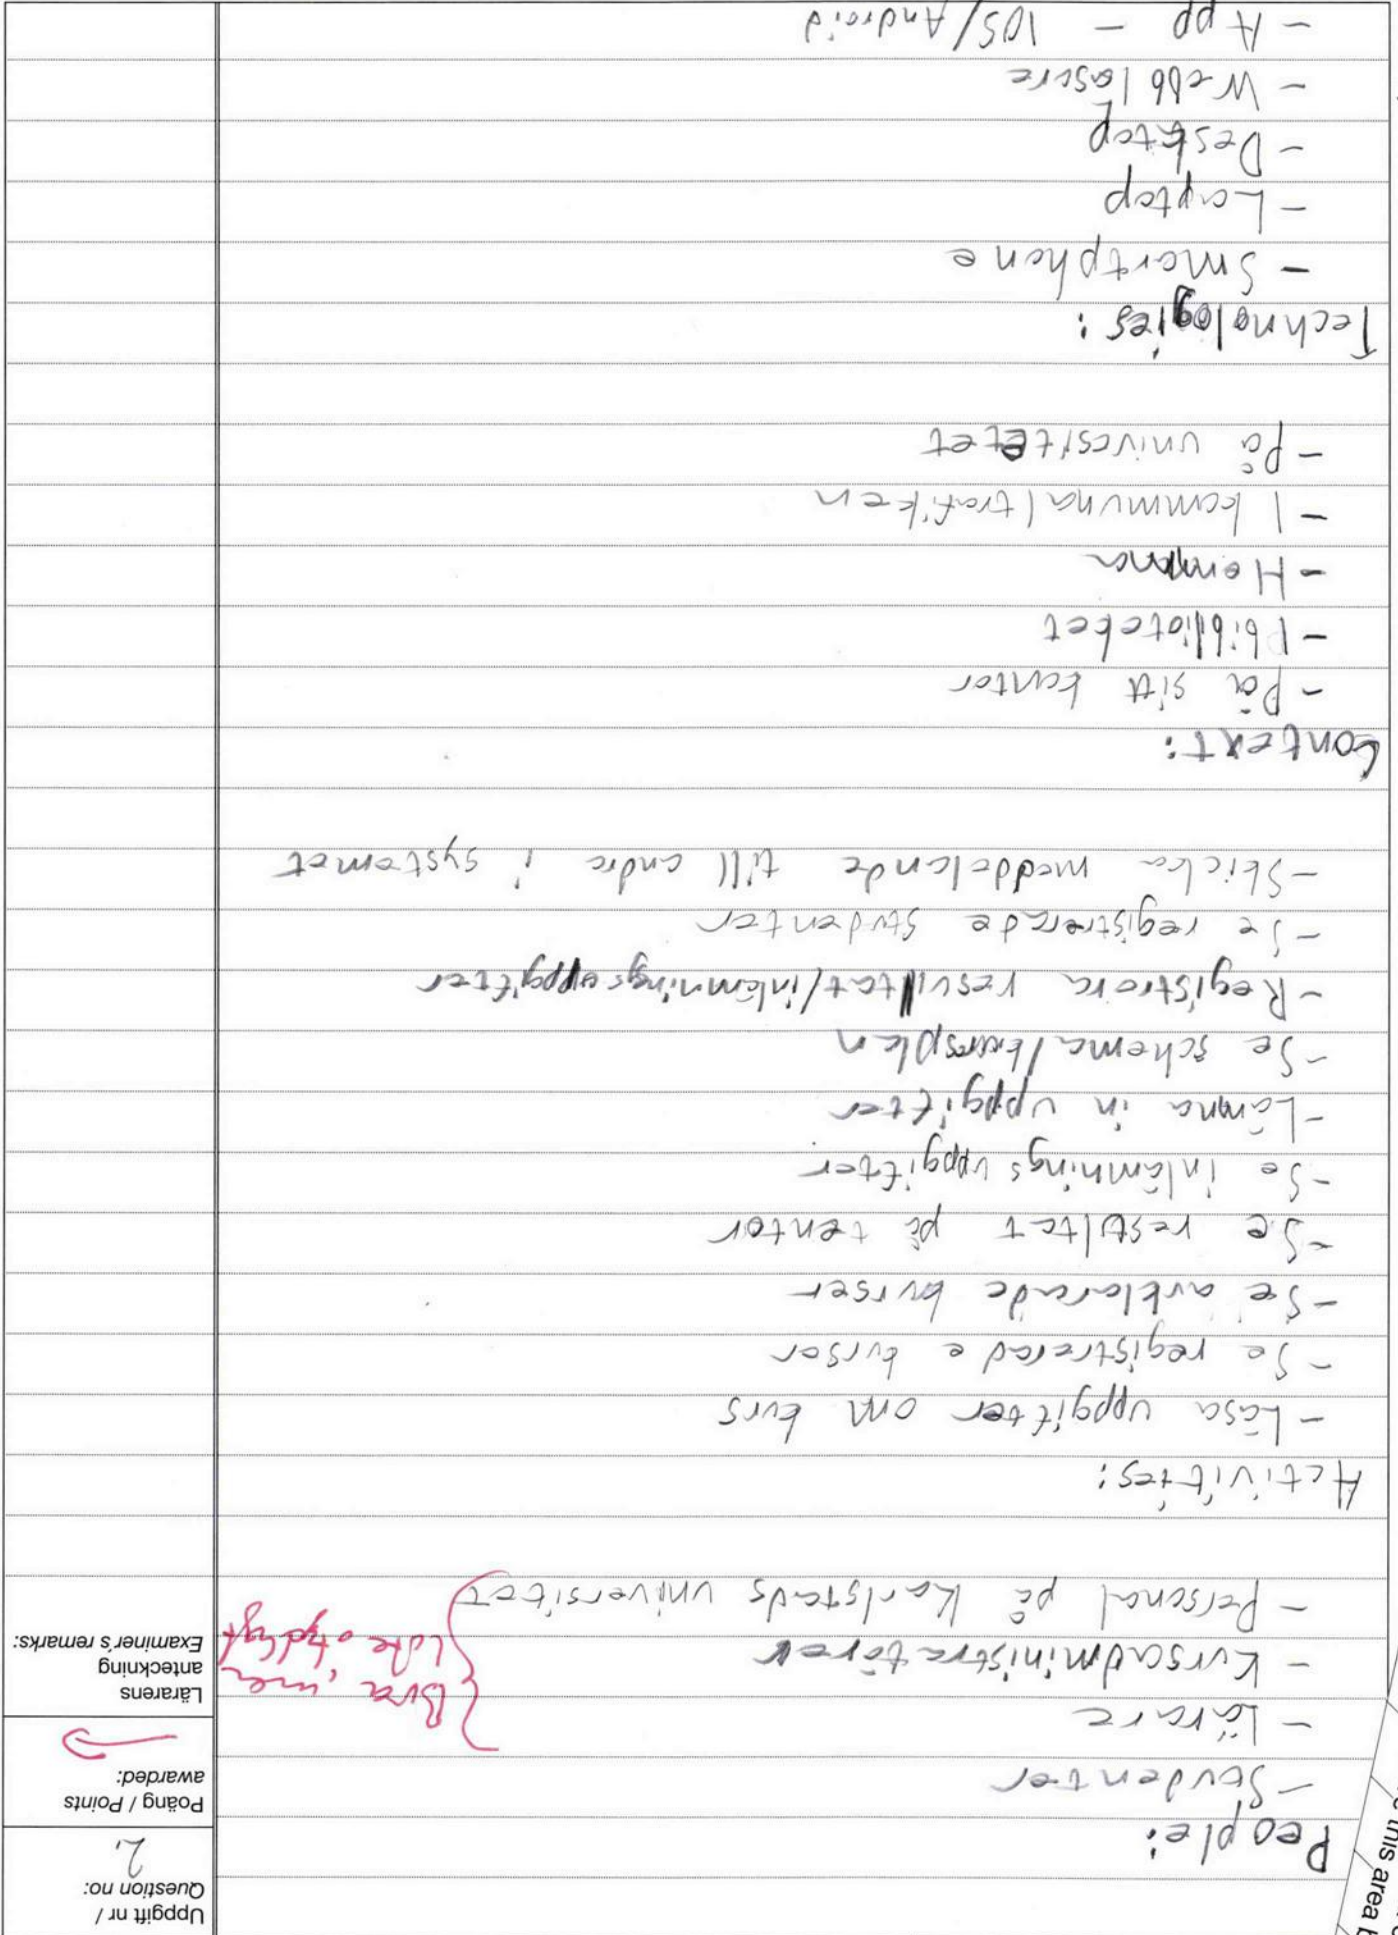 Uppgift nr /
Question no:
2.
Poäng / Points
awarded:
Lärarens
anteckning
Examiner's remarks:
People:
- Studenter
- Lärare
- Kursadministratörer
- Personal på Karlstads universitet
Bra, men
lite otydligt
Activities:
- Läsa uppgifter om kurs
- Se registrerade kurser
- Se avklarade kurser
- Se resultat på tentor
- Se inlämningsuppgifter
- Lämna in uppgifter
- Se schema/kursplan
- Registrera resultat/inlämningsuppgifter
- Se registrerade studenter
- Skicka meddelande till andra i systemet
Context:
- På sitt kontor
- I biblioteket
- Hemma
- I kommunaltrafiken
- på universitetet
Technologies:
- Smartphone
- Laptop
- Desktop
- Webbläsare
- App - IOS/Android
this area b